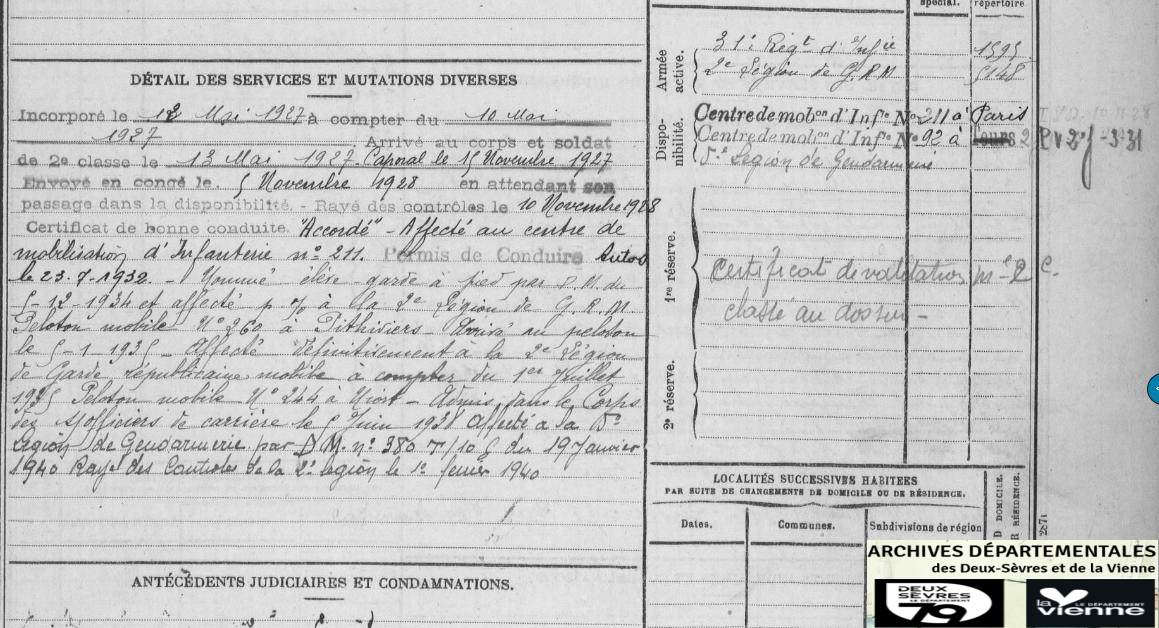 DÉTAIL DES SERVICES ET MUTATIONS DIVERSES
Incorporé le 12 Mai 1927 à compter du 10 Mai
1927 Arrivé au corps et soldat
de 2e classe le 13 Mai 1927. Caporal le 15 Novembre 1927
Envoyé en congé le. 5 Novembre 1928 en attendant son
passage dans la disponibilité. - Rayé des contrôles le 10 Novembre 1928
Certificat de bonne conduite. "Accordé" - Affecté au centre de
mobilisation d'Infanterie n° 211. Permis de Conduire Autos
le 23-7-1932. - Nommé élève garde à pied par D.M. du
5-12-1934 et affecté à la 2e Légion de G.R.M.
Peloton mobile N° 260 à Pithiviers - Arrivé au peloton
le 5-1-1935 - Affecté définitivement à la 2e Légion
de Garde républicaine mobile à compter du 1er Juillet
1935 Peloton mobile N° 244 à Niort - Admis dans le Corps
des s/officiers de carrière le 5 Juin 1938 Affecté à la 5e
Légion de Gendarmerie par D.M. n° 380 T/10 G du 19 Janvier
1940 Rayé des Controles de la 2e légion le 1er fevrier 1940
ANTÉCÉDENTS JUDICIAIRES ET CONDAMNATIONS.
spécial.
répertoire
Armée active.
31e Régt d'Infie 1595
2e Légion de G.R.M 5148
Dispo-nibilité.
Centre de mobon d'Infie N° 211 à Paris
Centre de mobon d'Infie N° 92 à Tours
5e Légion de Gendarmerie
1re réserve.
Certificat de validation n° 2 C.
classé au dossier -
2e réserve.
LOCALITÉS SUCCESSIVES HABITÉES
PAR SUITE DE CHANGEMENTS DE DOMICILE OU DE RÉSIDENCE.
Dates.
Communes.
Subdivisions de région
D DOMICILE.
R RÉSIDENCE.
ARCHIVES DÉPARTEMENTALES
des Deux-Sèvres et de la Vienne
DEUX SÈVRES
LE DÉPARTEMENT
79
la vienne
LE DÉPARTEMENT
86